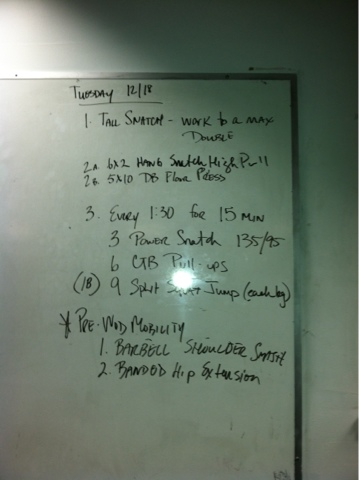 Tuesday 12/18
1. Tall Snatch - work to a max
Double
2A. 6x2 Hang Snatch High Pull
2B. 5x10 DB Floor Press
3. Every 1:30 for 15 min
3 Power Snatch 135/95
6 CTB Pull-ups
(18) 9 Split Squat Jump (each leg)
* Pre-WOD Mobility
1. Barbell Shoulder Smash
2. Banded Hip Extension